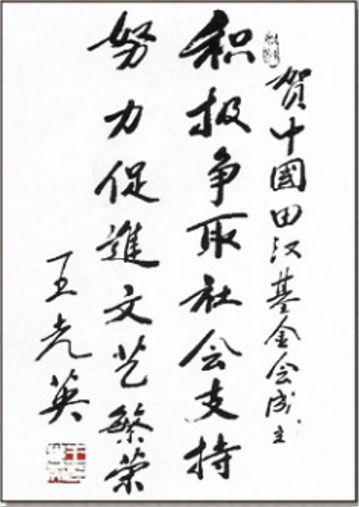 贺中國田汉基金会成立
积极争取社会支持
努力促進文艺繁荣
王光英